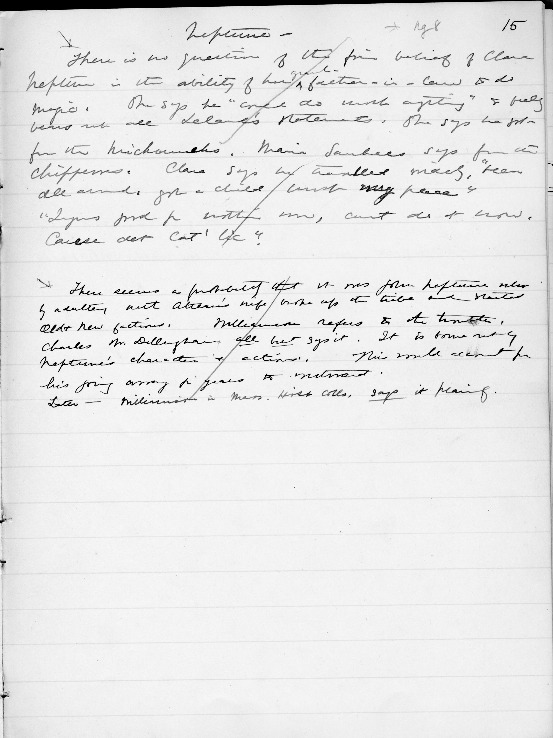 Neptune –
→ pg 8
15
There is no question of the firm belief of Clara
Neptune in the ability of her father-in-law to do
magic. She says he "could do most anything" & fully
bears out all statements. She says he got
from the Michmacks. Maria says from the
Chippewas. Clara says he travelled widely, "been
all around, got a child most every place"
"Injuns good for nothin now, can't do it now.
Cause dat Cat'lic".
There seems a probability that it was John Neptune who
by adultery with Attean's wife broke up the tribe and started
Old & New factions. Williamson refers to the trouble.
Charles M. Dillingham all but says it. It is borne out by
Neptune's character & actions. This would account for
his going away for years to
Later — Williamson in Mass. Hist Colls. says it plainly.